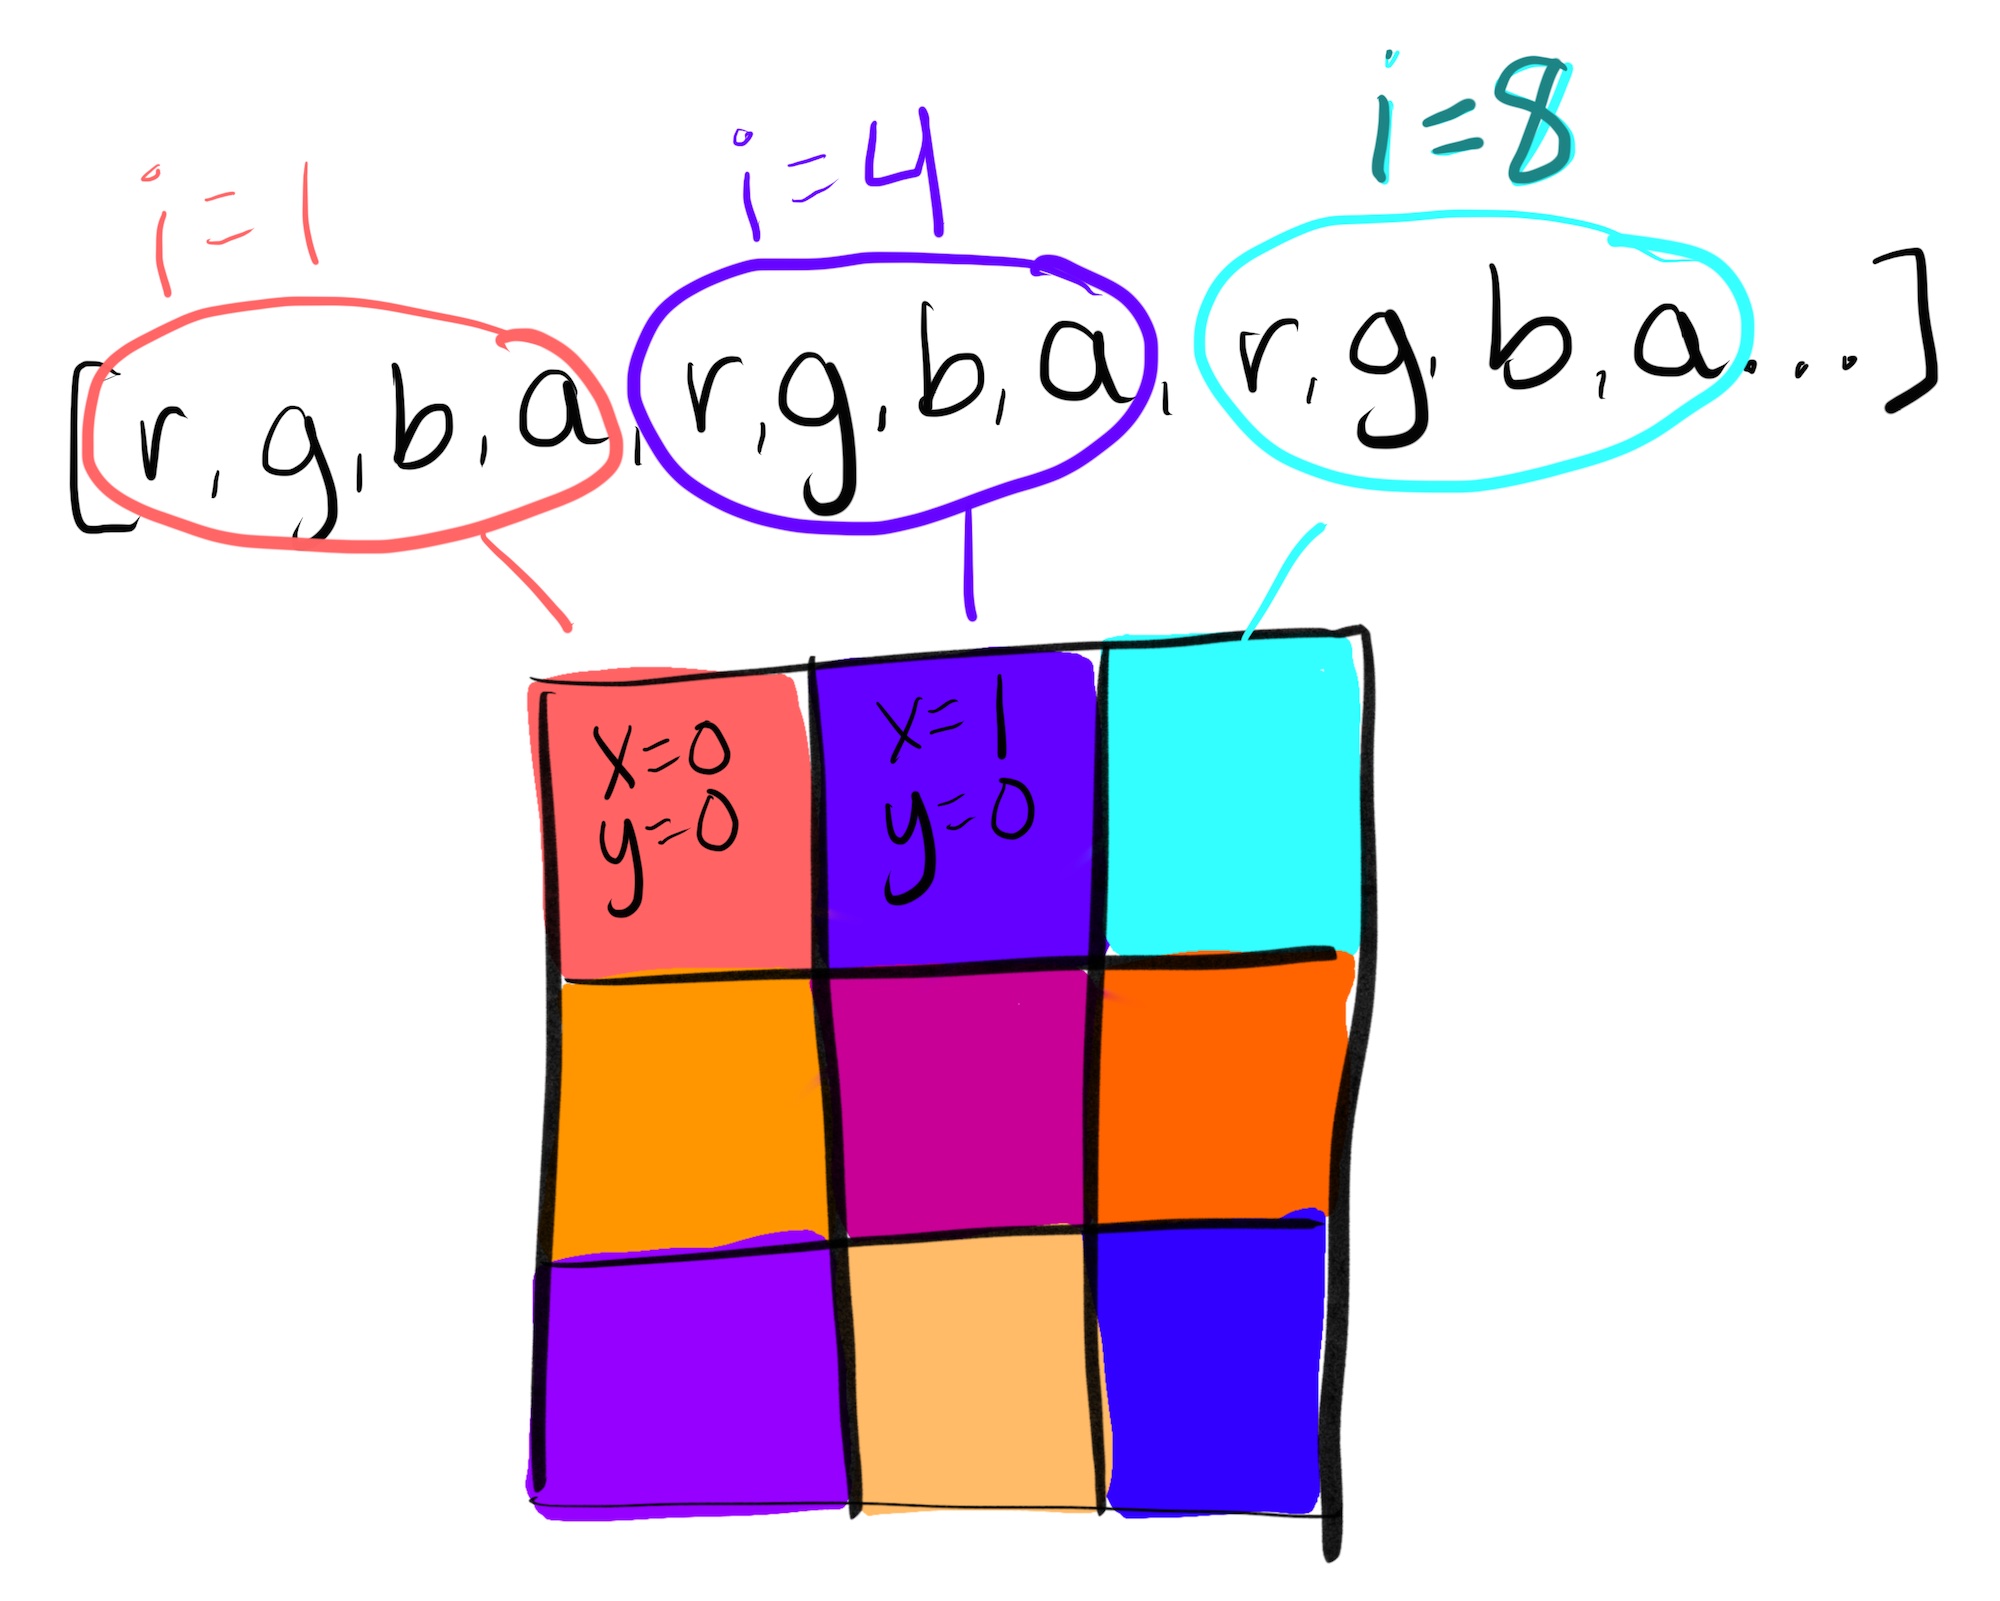 i=1 i=4 i=8
[r,g,b,a,r,g,b,a,r,g,b,a...]
x=0 x=1
y=0 y=0